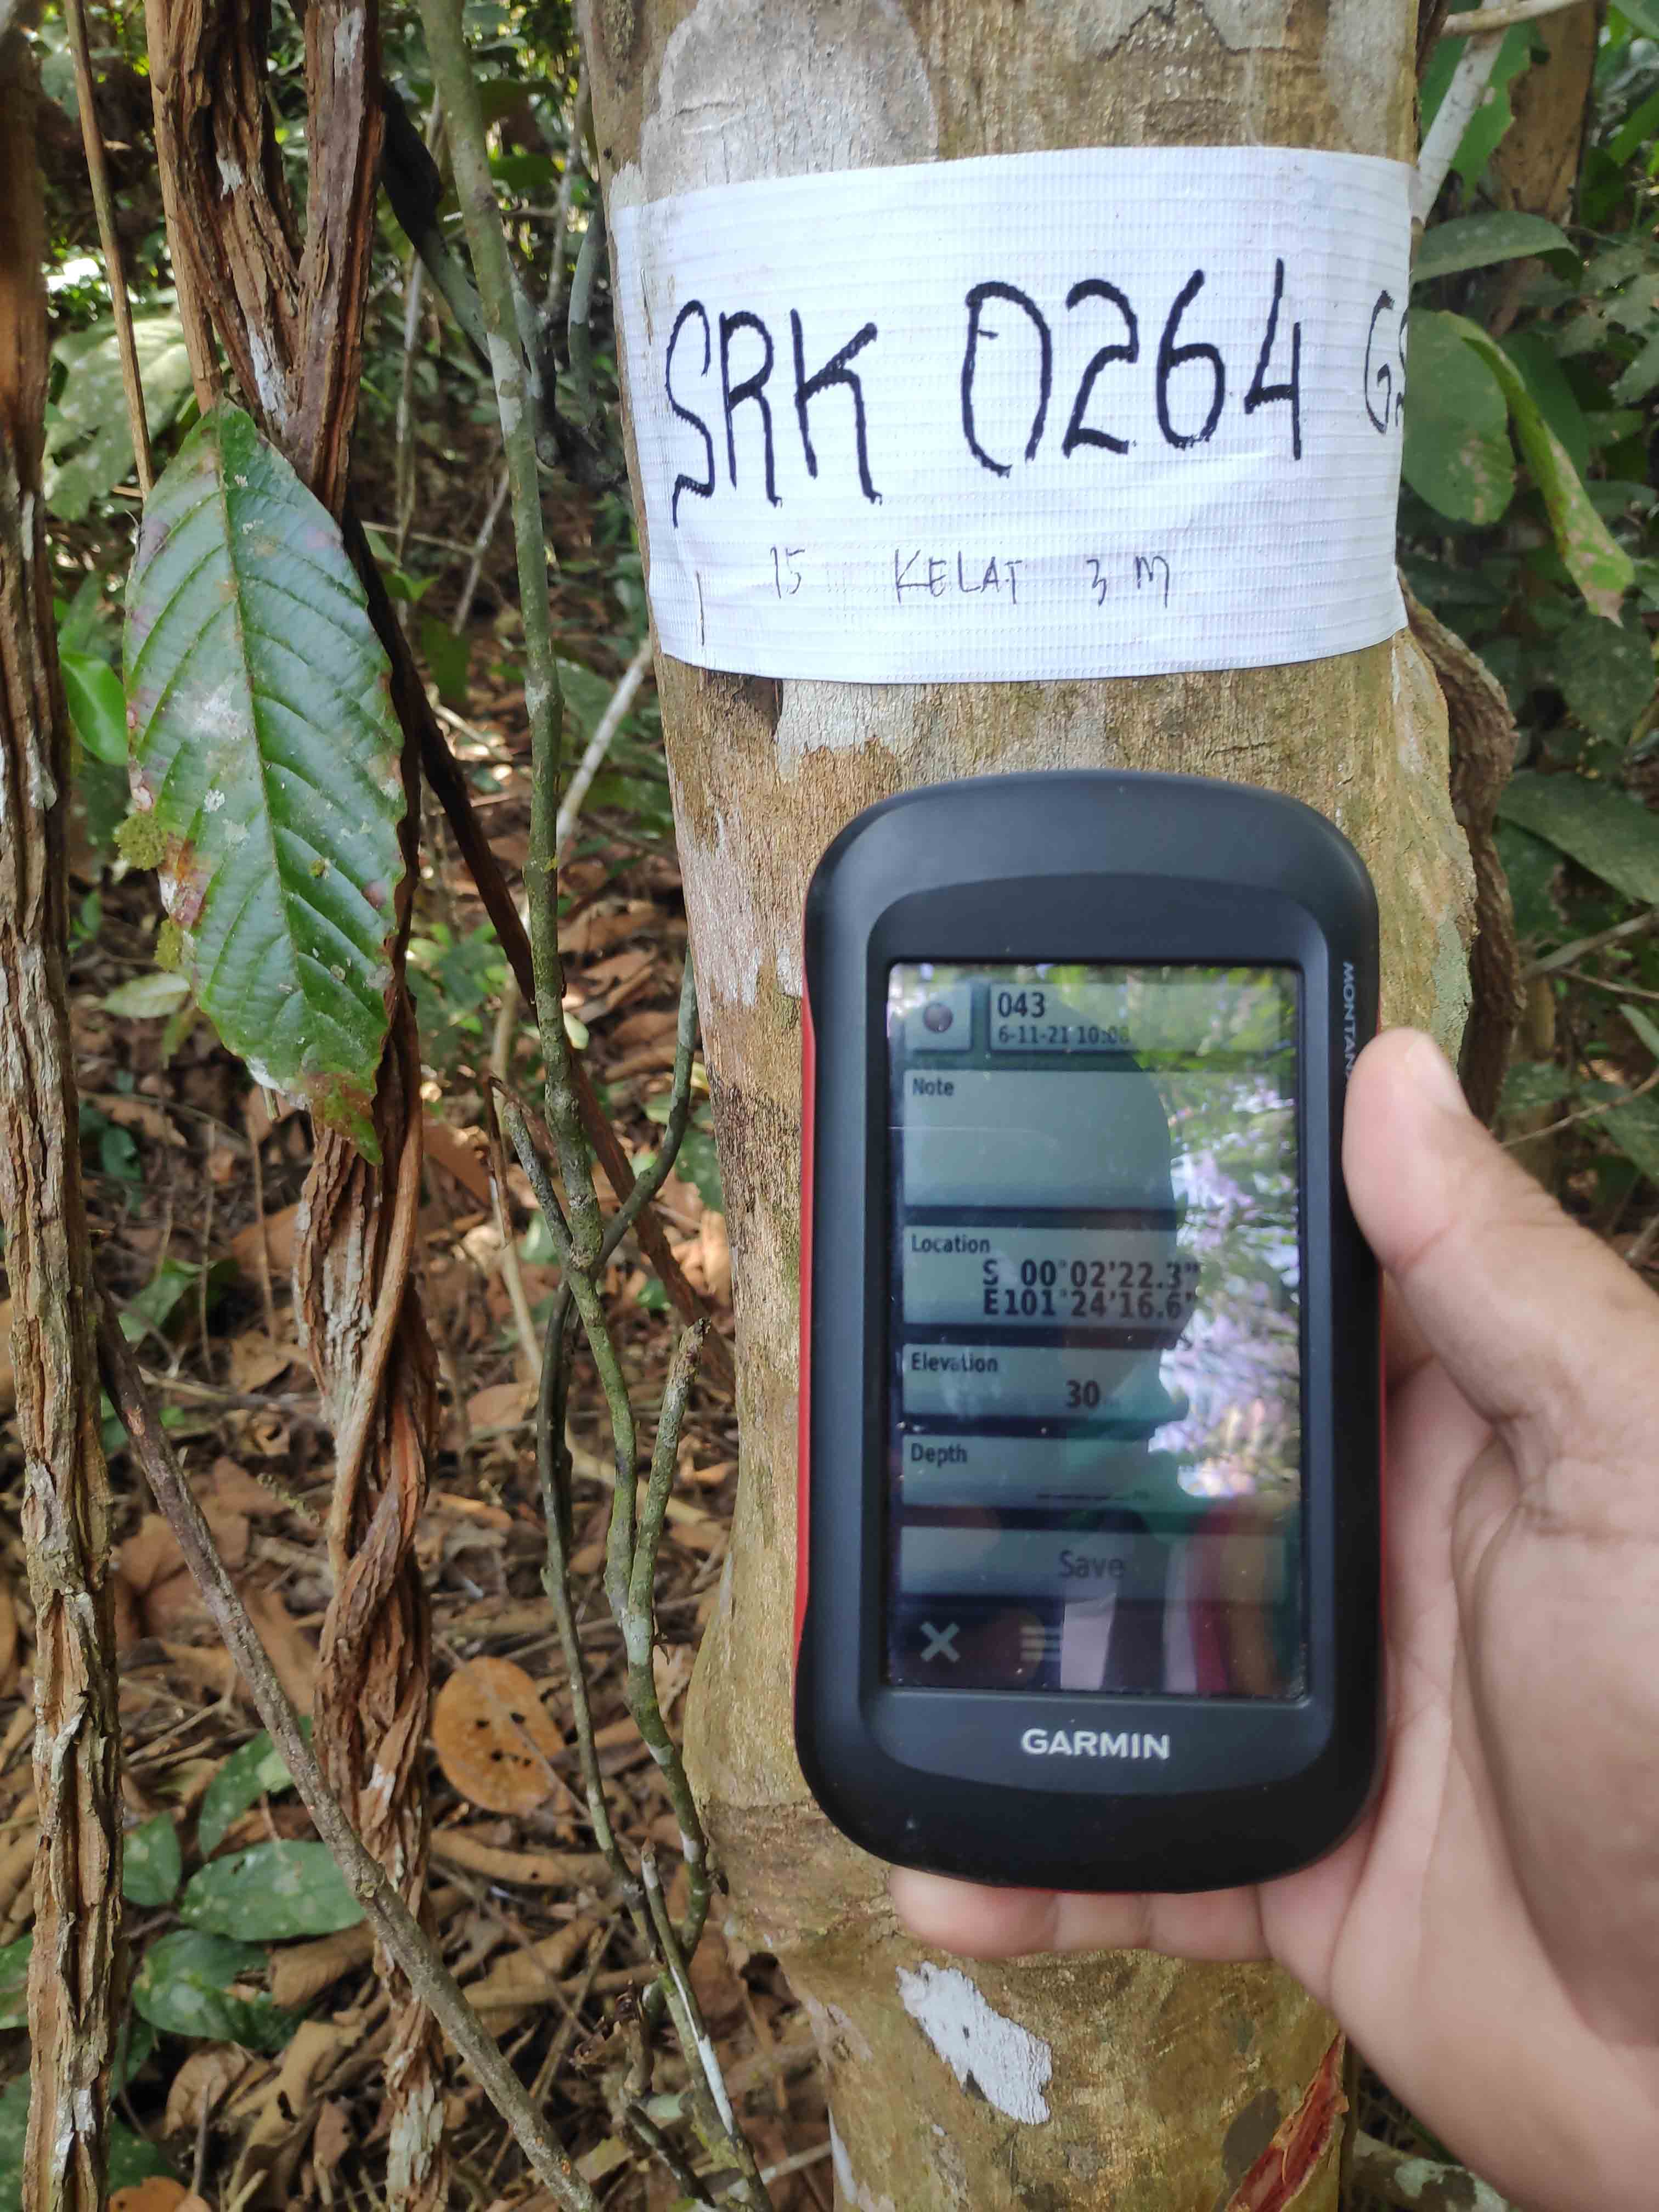 SRK 0264
15 KELAT 3 M
MONTANA
043
6-11-21 10:08
Note
Location
S 00°02'22.3"
E101°24'16.6"
Elevation
30
Depth
Save
GARMIN